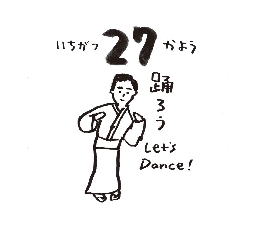 いちがつ 27 かよう
踊ろう
Let's
Dance!